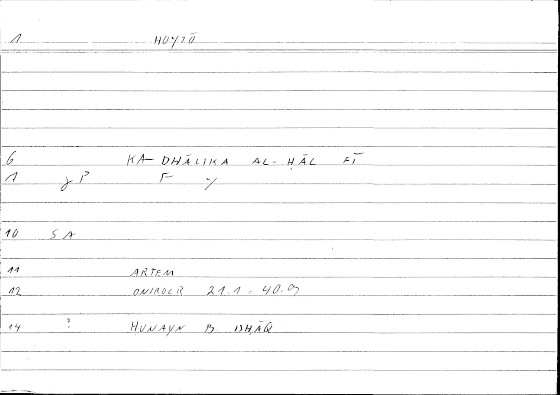 1 HOYTŌ
6 KA-DHĀLIKA AL-ḤĀL FĪ
1 γP Γ γ
10 SA
11 ARTEM
12 ONIROCR 21.1 - 40.9
14 ? HUNAYN B DHĀQ